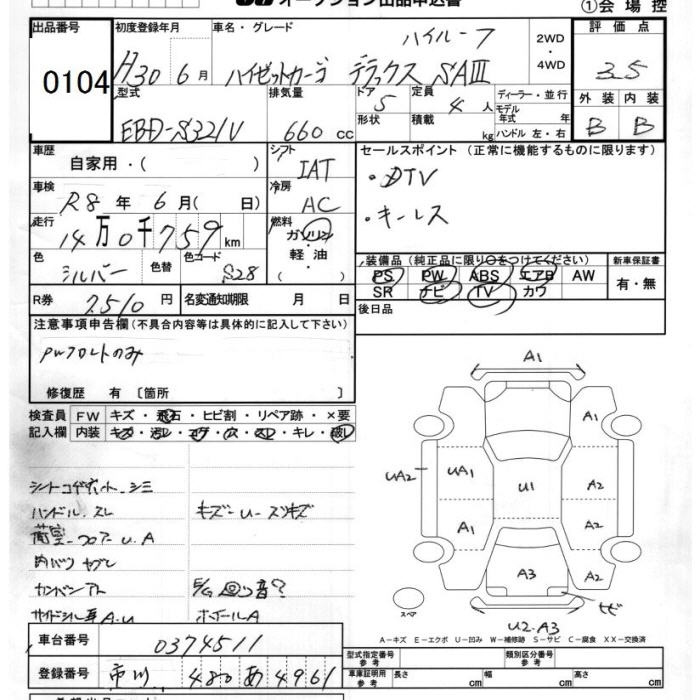 オークション出品申込書
①会場控
出品番号 初度登録年月 車名・グレード ハイルーフ 2WD・4WD 評価点
0104 H30 6月 ハイゼットカーゴ デラックス SAIII 3.5
型式 排気量 ドア 5 定員 4人 ディーラー・並行 外装 内装
EBD-S321V 660cc 形状 積載 kg モデル年式 年 ハンドル 左・右 B B
車歴 自家用・( ) シフト IAT セールスポイント (正常に機能するものに限ります)
車検 R8年 6月( 日) 冷房 AC ・DTV
・キーレス
走行 14万0千759km 燃料 ガソリン 軽油・( )
装備品 (純正品に限り○をつけてください) 新車保証書
色 シルバー 色替 色コード S28 PS PW ABS エアB AW 有・無
SR ナビ TV カワ
R券 7510円 名変通知期限 月 日 後日品
注意事項申告欄(不具合内容等は具体的に記入して下さい)
PWフロントのみ
修復歴 有 〔箇所 〕
検査員記入欄 FW キズ・飛石・ヒビ割・リペア跡・×要
内装 キズ・汚レ・コゲ・穴・スレ・キレ・破レ
シートコゲ穴小、シミ
ハンドル、スレ キズ-U-スリキズ
荷室-フロアーU.A
内バリ ヤブレ
カンバンアト E/G 音?
サイドシル U ホイールA
A1
A1
UA2 UA1 U1 A2
A1 A2
A3 A2
スペア
サビ
U2.A3
A-キズ E-エクボ U-凹み W-補修跡 S-サビ C-腐食 XX-交換済
車台番号 0374511
型式指定番号 参考 類別区分番号 参考
登録番号 市川 480 あ 4961
車庫証明用 参考 長さ cm 幅 cm 高さ cm